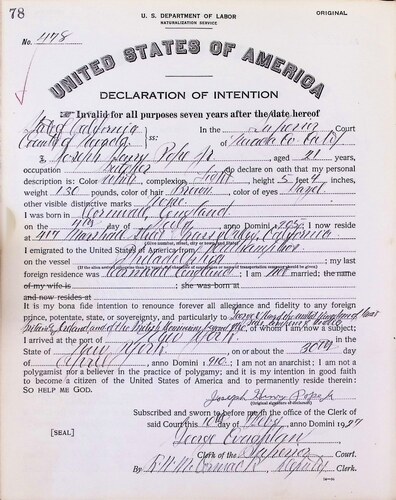 78
U. S. DEPARTMENT OF LABOR
NATURALIZATION SERVICE
ORIGINAL
No. 1178
UNITED STATES OF AMERICA
DECLARATION OF INTENTION
Invalid for all purposes seven years after the date hereof
State of California
County of Nevada ss: In the Superior Court of Nevada Co. Calif.
I, Joseph Henry Pope Jr, aged 21 years,
occupation do declare on oath that my personal
description is: Color white, complexion Light, height 5 feet 4 inches,
weight 130 pounds, color of hair Brown, color of eyes Hazel
other visible distinctive marks none
I was born in Cornwall, England
on the 4th day of July, anno Domini 1905; I now reside
at Marshall Street Grass Valley, California
(Give number, street, city or town, and State)
I emigrated to the United States of America from Southampton
on the vessel Philadelphia; my last
foreign residence was Cornwall England; I am not married; the name
of my wife is; she was born at
and now resides at
It is my bona fide intention to renounce forever all allegiance and fidelity to any foreign
prince, potentate, state, or sovereignty, and particularly to George V, of the united Kingdom of Great
Britain & Ireland and of the British Dominions beyond the seas, Emperor of India, of whom I am now a subject;
I arrived at the port of New York, in the
State of New York, on or about the 30th day
of April, anno Domini 1910; I am not an anarchist; I am not a
polygamist nor a believer in the practice of polygamy; and it is my intention in good faith
to become a citizen of the United States of America and to permanently reside therein:
SO HELP ME GOD.
Joseph Henry Pope Jr
(Original signature of declarant)
Subscribed and sworn to before me in the office of the Clerk of
said Court this 10th day of Feby, anno Domini 1927
[SEAL]
George Coughlan
Clerk of the Superior Court.
By R. N. McCormack, Deputy Clerk.